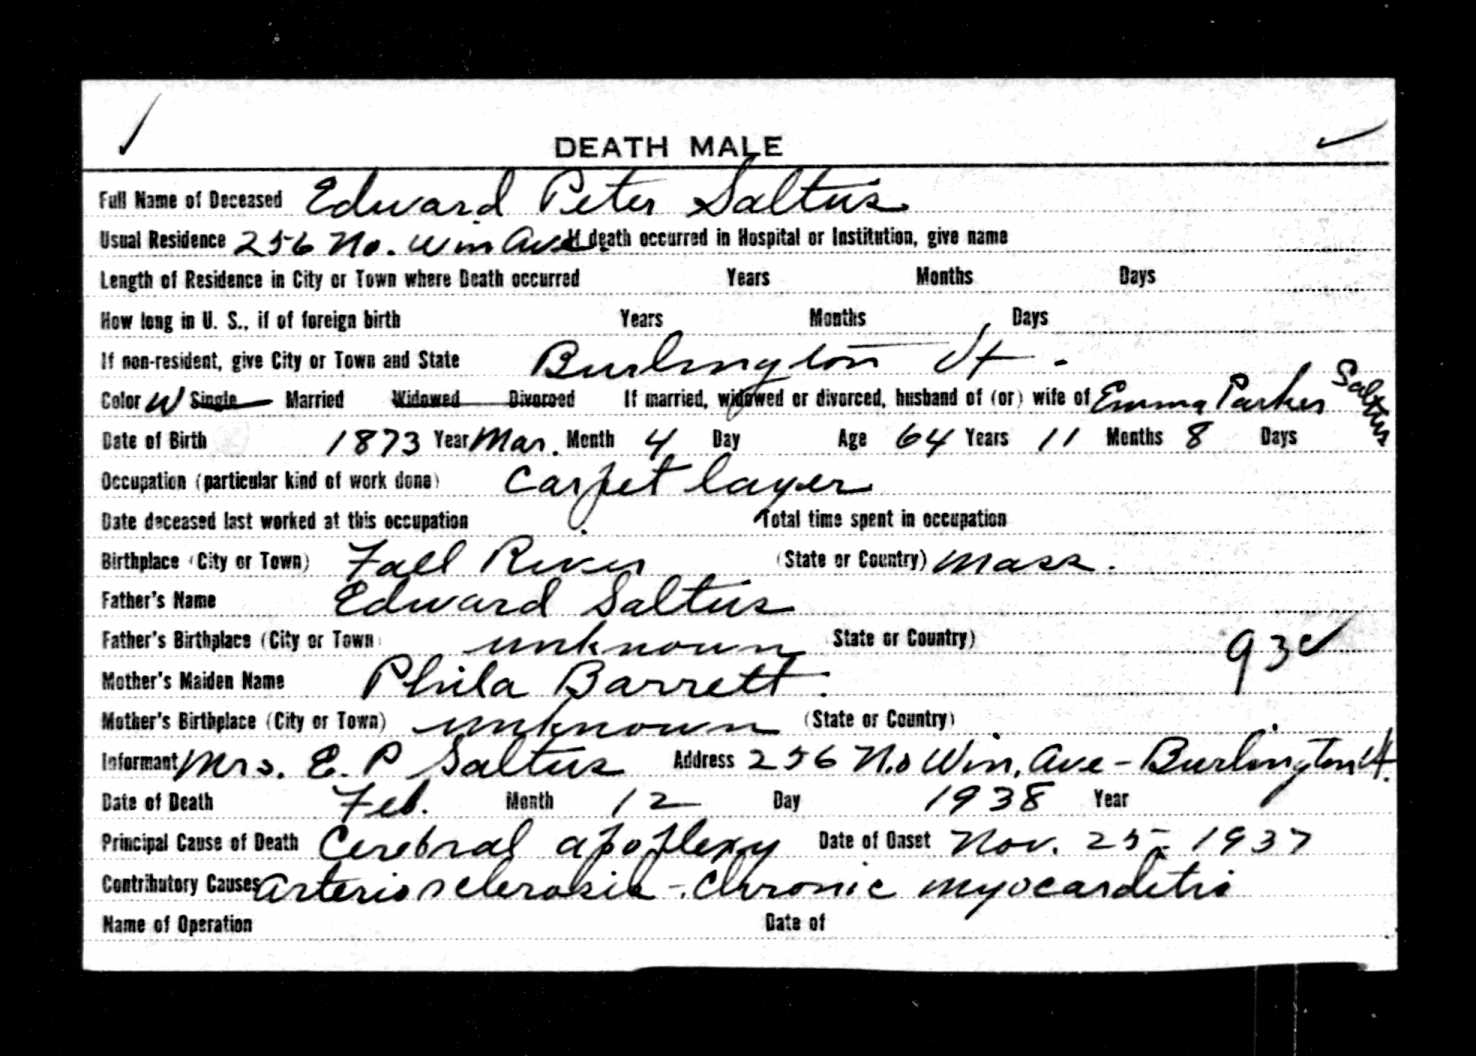 DEATH MALE
Full Name of Deceased Edward Peter Saltus
Usual Residence 256 No. Win Ave. If death occurred in Hospital or Institution, give name
Length of Residence in City or Town where Death occurred Years Months Days
How long in U. S., if of foreign birth Years Months Days
If non-resident, give City or Town and State Burlington Vt.
Color W Single Married Widowed Divorced If married, widowed or divorced, husband of (or) wife of Emma Parker Saltus
Date of Birth 1873 Year Mar. Month 4 Day Age 64 Years 11 Months 8 Days
Occupation (particular kind of work done) Carpet layer
Date deceased last worked at this occupation Total time spent in occupation
Birthplace (City or Town) Fall River (State or Country) Mass.
Father's Name Edward Saltus
Father's Birthplace (City or Town) unknown State or Country)
93c
Mother's Maiden Name Phila Barrett.
Mother's Birthplace (City or Town) unknown (State or Country)
Informant Mrs. E. P Saltus Address 256 No Win. Ave - Burlington Vt.
Date of Death Feb. Month 12 Day 1938 Year
Principal Cause of Death Cerebral apoplexy Date of Onset Nov. 25 - 1937
Contributory Causes Arteriosclerosis - Chronic myocarditis
Name of Operation Date of